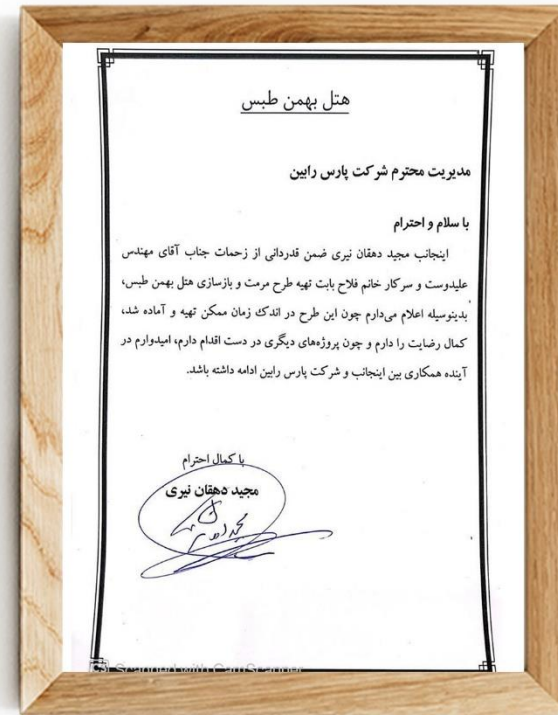 هتل بهمن طبس
مدیریت محترم شرکت پارس رابین
با سلام و احترام
اینجانب مجید دهقان نیری ضمن قدردانی از زحمات جناب آقای مهندس
علیدوست و سرکار خانم فلاح بابت تهیه طرح مرمت و بازسازی هتل بهمن طبس،
بدینوسیله اعلام می‌دارم چون این طرح در اندک زمان ممکن تهیه و آماده شد،
کمال رضایت را دارم و چون پروژه‌های دیگری در دست اقدام دارم، امیدوارم در
آینده همکاری بین اینجانب و شرکت پارس رابین ادامه داشته باشد.
با کمال احترام
مجید دهقان نیری
CS Scanned with CamScanner